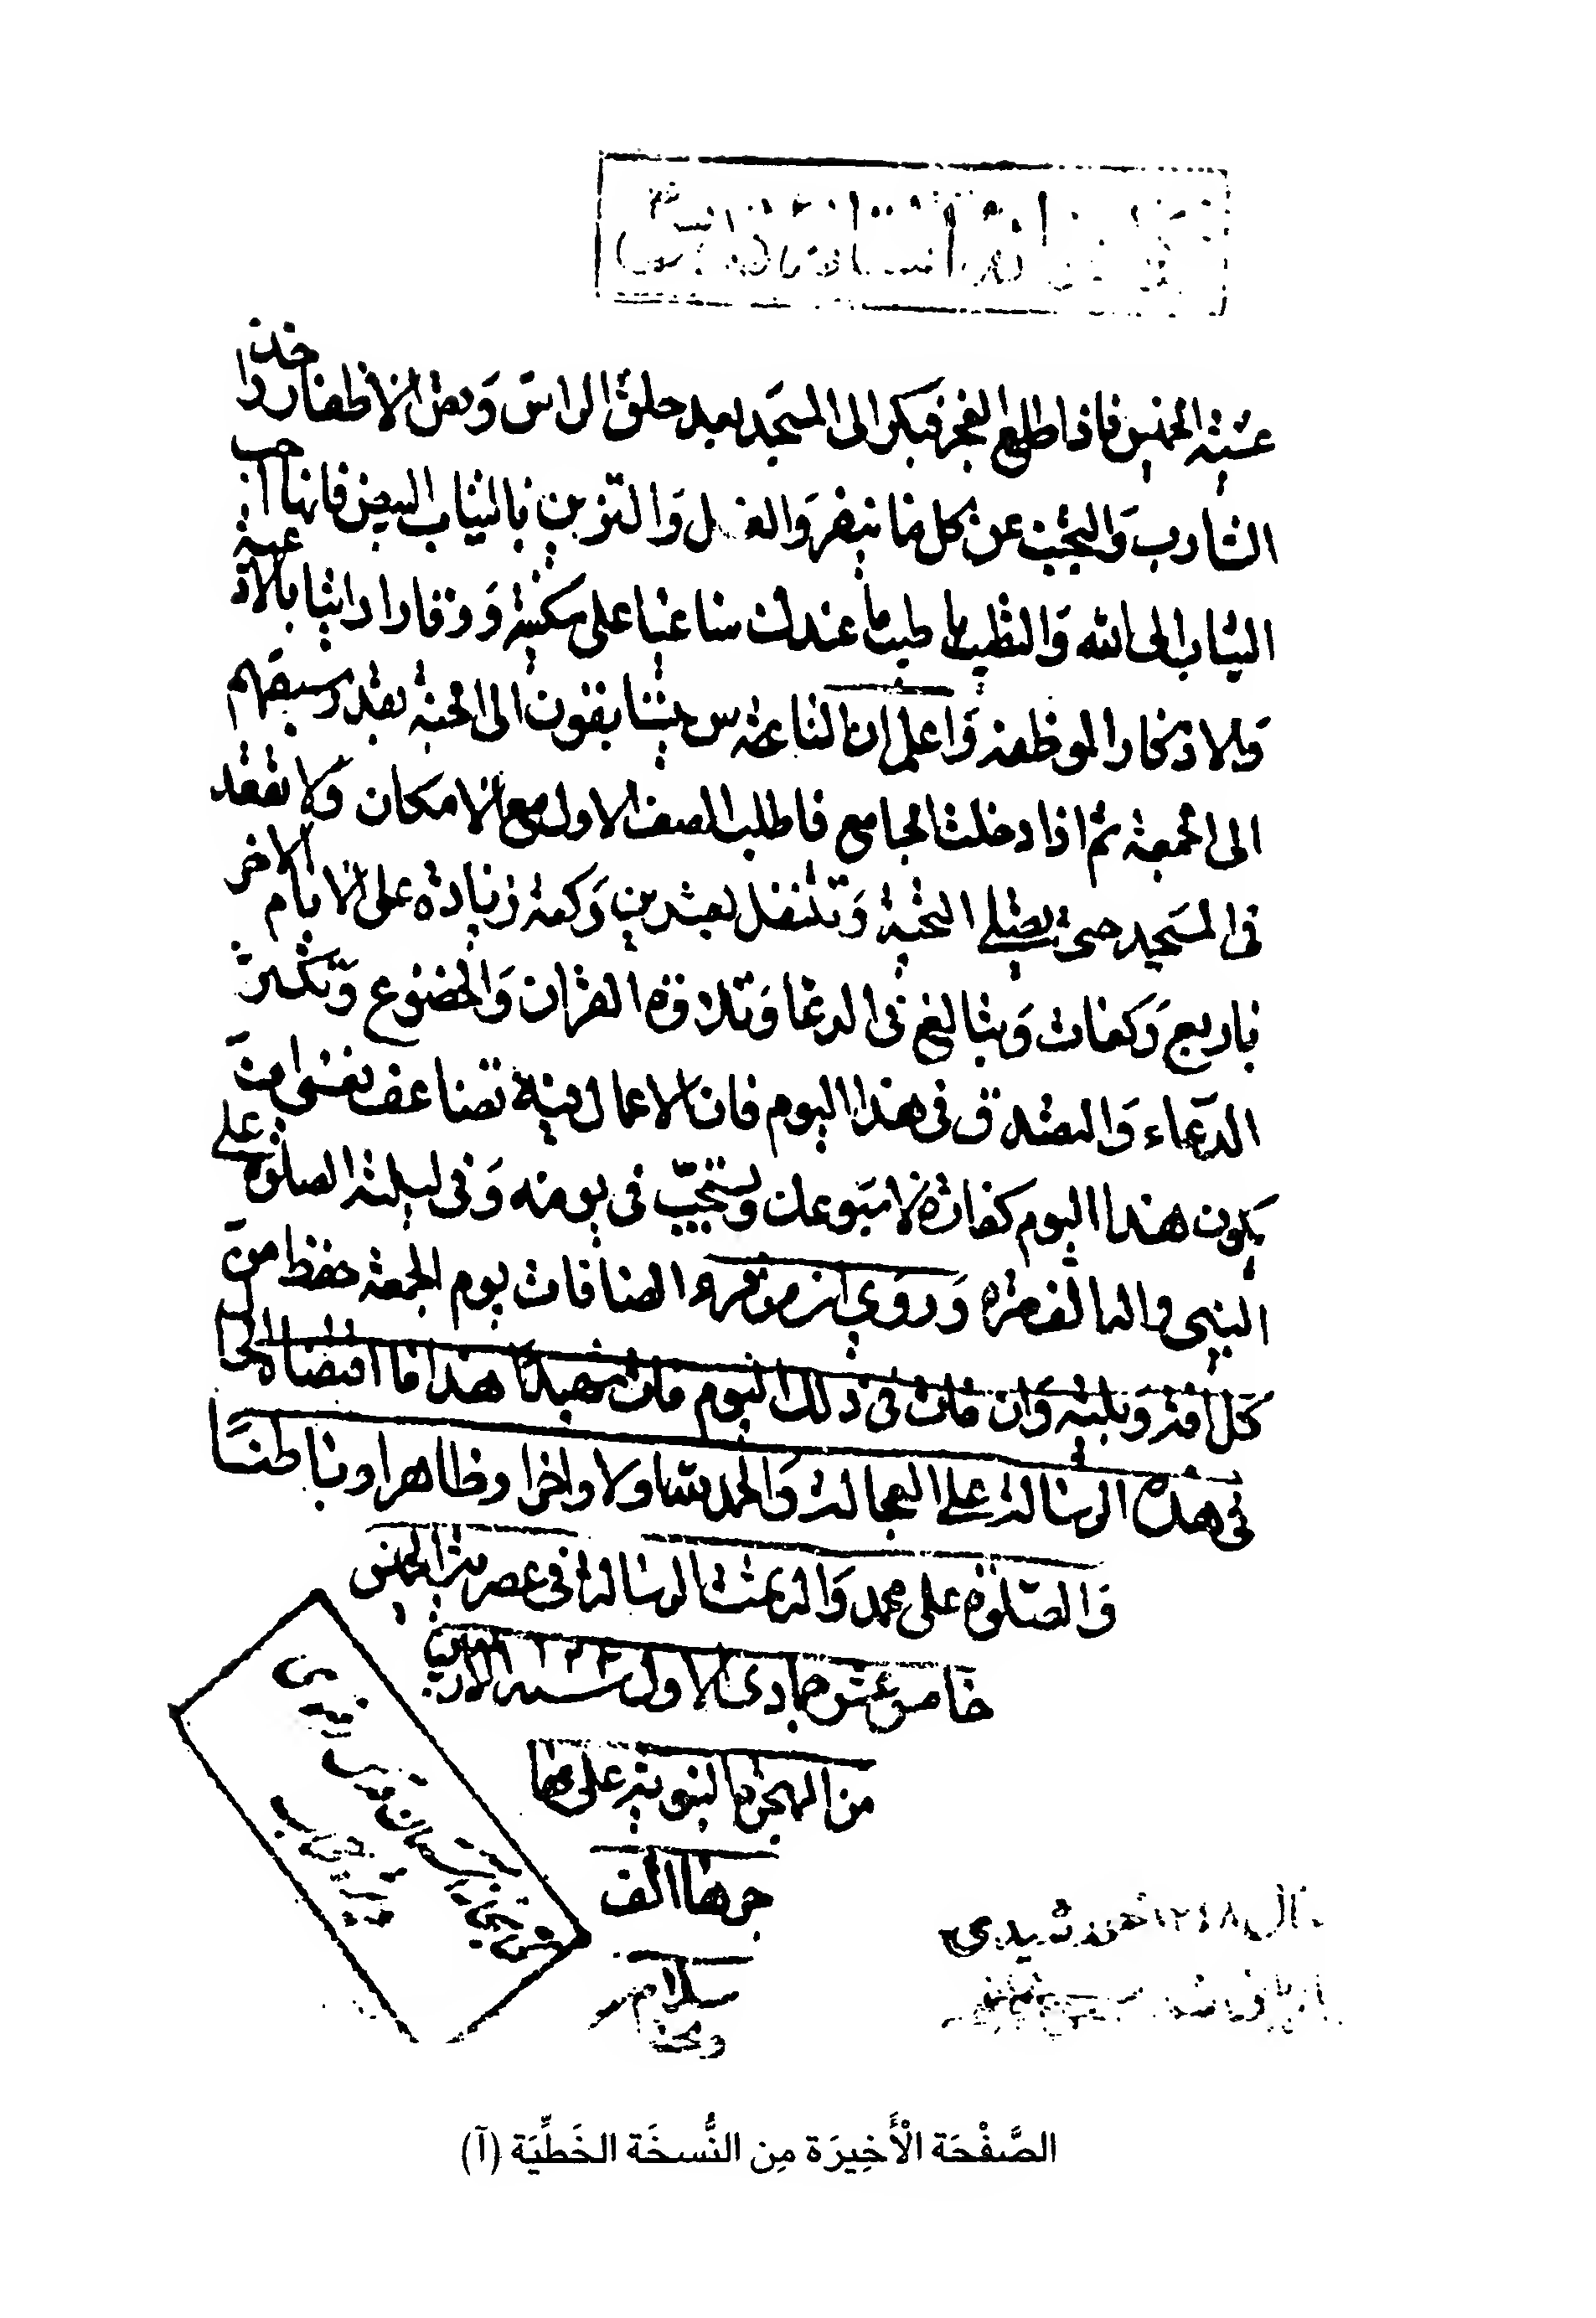 عشية الخميس فاذا طلع الفجر فبكر الى المسجد بعد حلق الراس وقص الاظفار واخذ
الشارب والتجنب عن كل ما ينفر والغسل والتزين بالثياب البيض فانها احب
الثياب الى الله والتطيب باطيب ما عندك ساعيا على سكينة ووقار اراتيا بالادعية
ولاذكار الموظفة واعلم ان الناس يتسابقون الى الجنة بقدر سبقهم
الى الجمعة ثم اذا دخلت الجامع فاطلب الصف الاول مع الامكان ولا تقعد
فى المسجد حتى تصلي التحية وتتنفل بعشرين ركعة زيادة على الايام الاخر
باربع ركعات وتبالغ فى الدعا وتلاوة القران والخضوع وتكثر
الدعاء والتصدق فى هذا اليوم فان الاعمال فيه تضاعف فعسى ان
يكون هذا اليوم كفارة لاسبوعك ويستحب فى يومه وفى ليلته الصلوة على
النبى واله الف مرة وروي ان من قرء الصافات يوم الجمعة حفظ من
كل افة وبلية وان مات فى ذلك اليوم مات شهيدا هذا ما اقتضاه الحال
فى هذه الرسالة على العجالة والحمد لله اولا واخرا وظاهرا وباطنا
والصلوة على محمد واله تمت الرسالة فى عصر الخميس
خامس عشر جمادى الاول سنة
من الهجرة النبوية على مها
جرها الف
سلام
الصَّفْحَة الْأَخِيرَة مِن النُّسخَة الخَطِّيَة (آ)